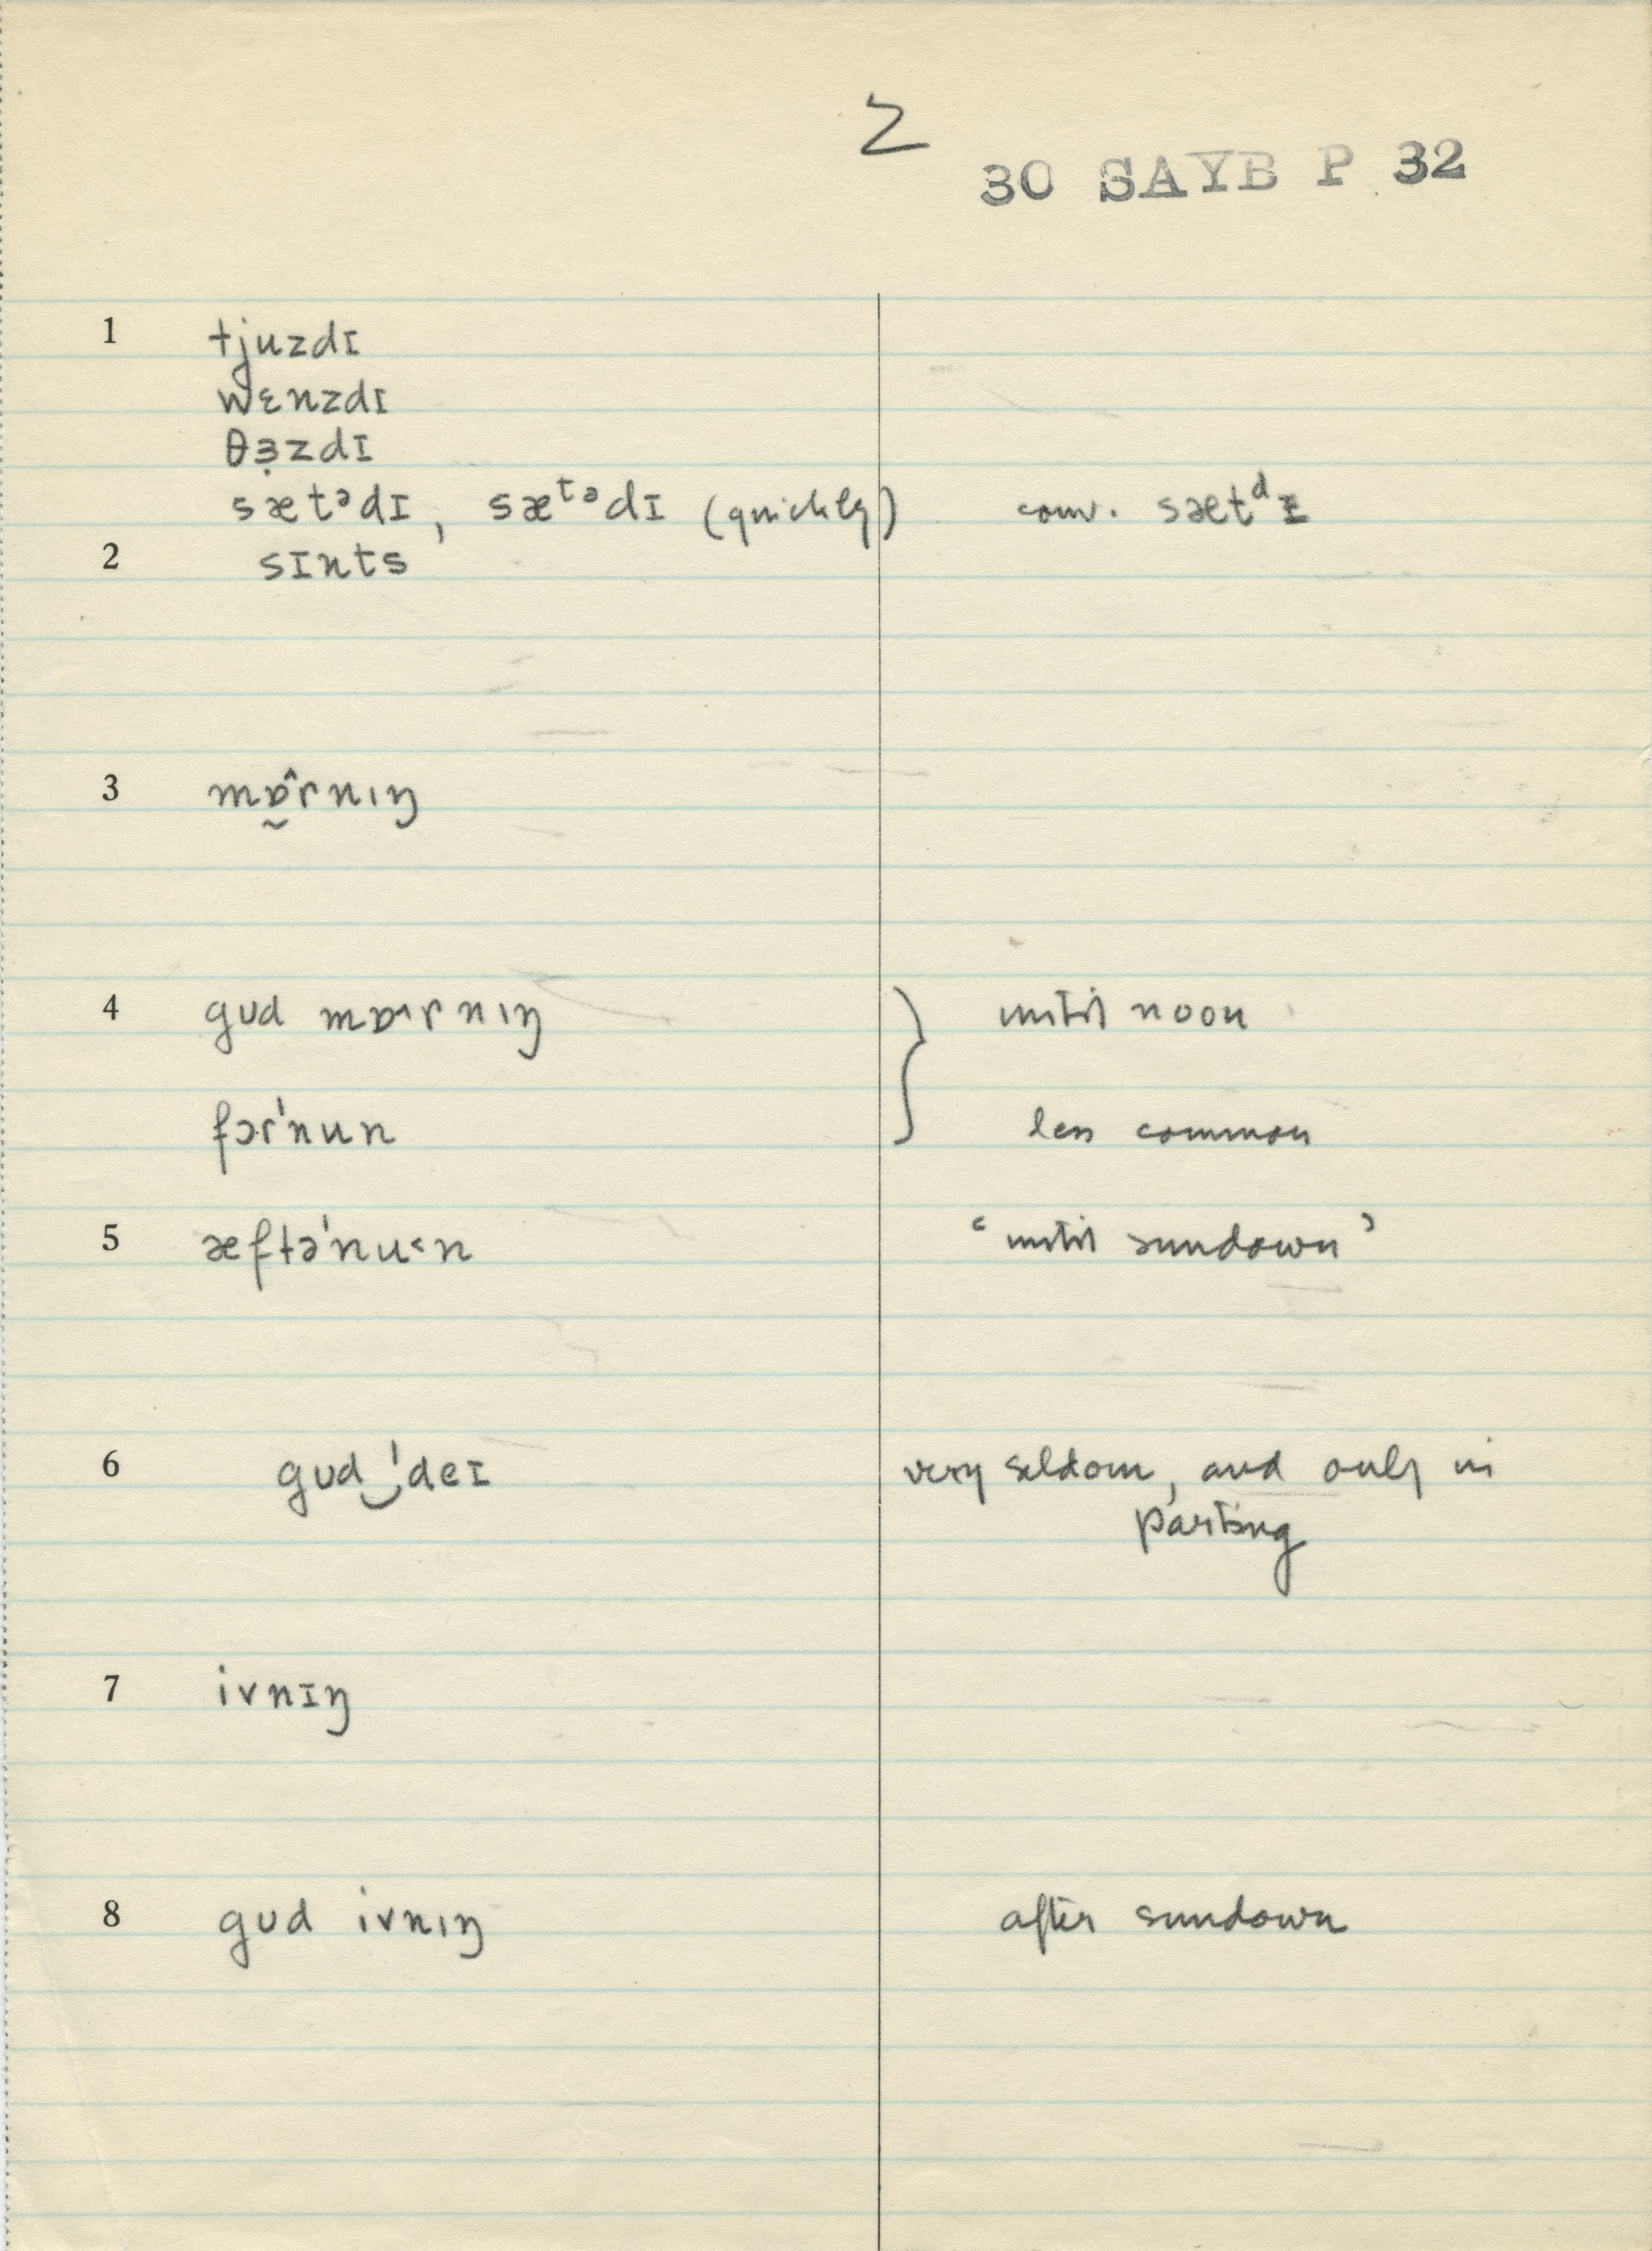 2
30 SAYB P 32
1 tjuzdɪ
wɛnzdɪ
θɜ̣zdɪ
sætᵊdɪ, sæᵗᵊdɪ (quickly) conv. sætᵈɪ
2 sɪnts
3 mɒ̰̂rnıŋ
4 gᴜd mɒ˄rnıŋ until noon
fɔr'nun less common
5 æftə'nu˂n ‘until sundown’
6 gᴜd‿'deɪ very seldom, and only in
parting
7 ivnɪŋ
8 gᴜd ivnıŋ after sundown